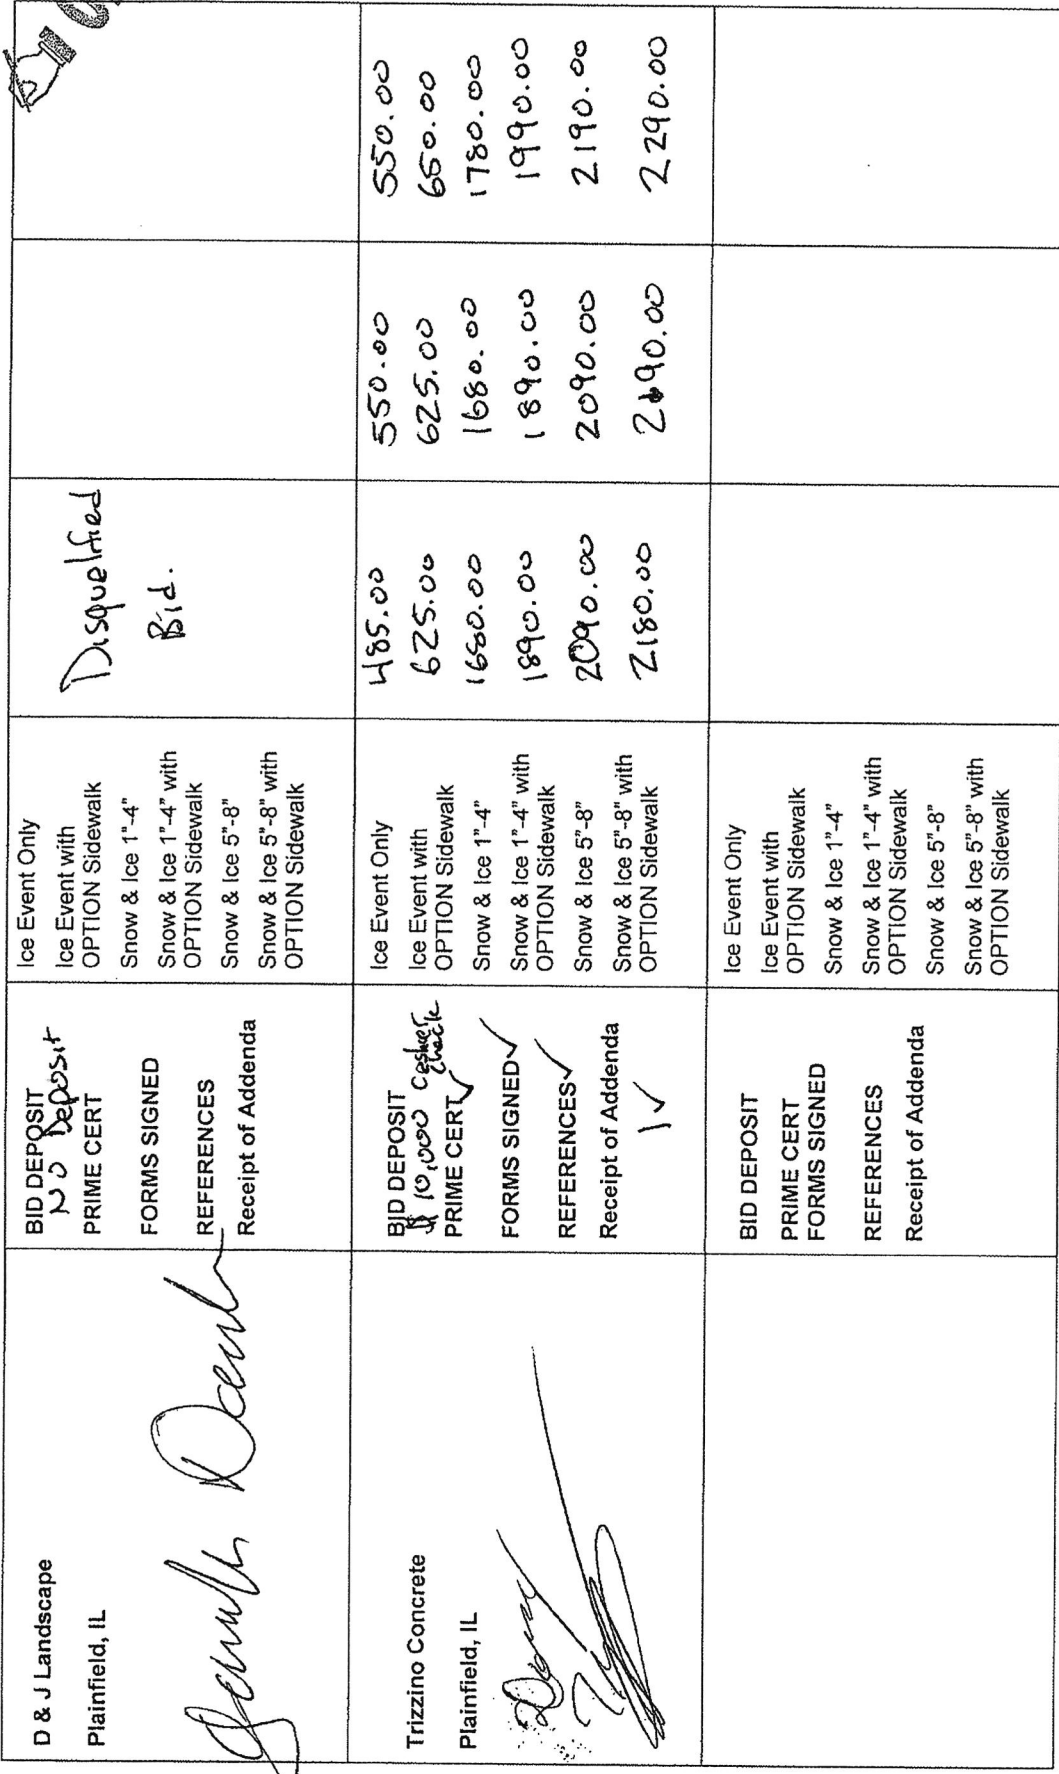 D & J Landscape
Plainfield, IL
BID DEPOSIT
NO Deposit
PRIME CERT
FORMS SIGNED
REFERENCES
Receipt of Addenda
Ice Event Only
Ice Event with
OPTION Sidewalk
Snow & Ice 1"-4"
Snow & Ice 1"-4" with
OPTION Sidewalk
Snow & Ice 5"-8"
Snow & Ice 5"-8" with
OPTION Sidewalk
Disquelified
Bid.
Trizzino Concrete
Plainfield, IL
BID DEPOSIT
$10,000 Casher Check
PRIME CERT ✓
FORMS SIGNED ✓
REFERENCES ✓
Receipt of Addenda
1 ✓
Ice Event Only 485.00 550.00 550.00
Ice Event with
OPTION Sidewalk 625.00 625.00 650.00
Snow & Ice 1"-4" 1680.00 1680.00 1780.00
Snow & Ice 1"-4" with
OPTION Sidewalk 1890.00 1890.00 1990.00
Snow & Ice 5"-8" 2090.00 2090.00 2190.00
Snow & Ice 5"-8" with
OPTION Sidewalk 2180.00 2290.00
BID DEPOSIT
PRIME CERT
FORMS SIGNED
REFERENCES
Receipt of Addenda
Ice Event Only
Ice Event with
OPTION Sidewalk
Snow & Ice 1"-4"
Snow & Ice 1"-4" with
OPTION Sidewalk
Snow & Ice 5"-8"
Snow & Ice 5"-8" with
OPTION Sidewalk